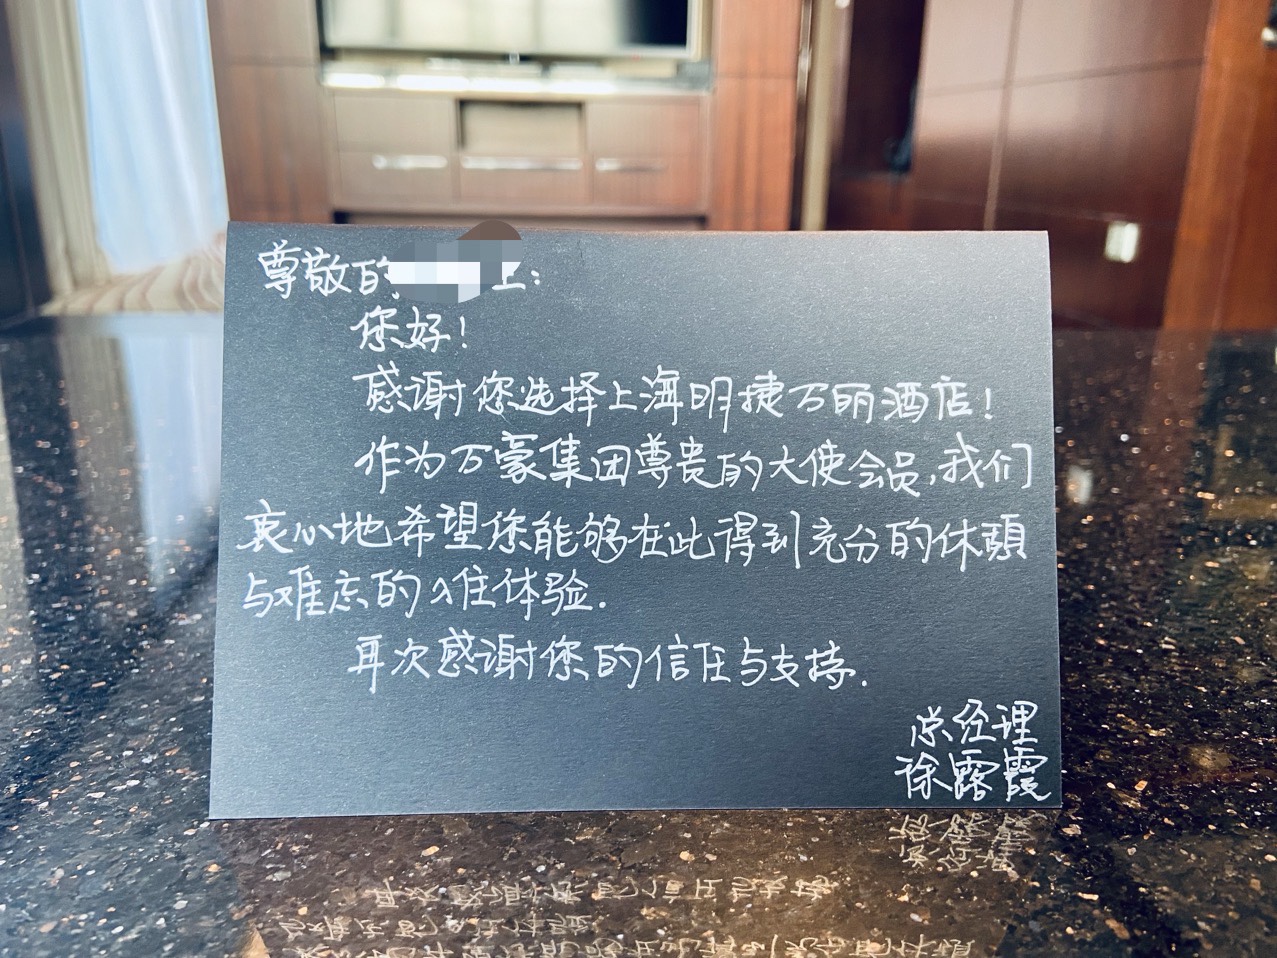 尊敬的 士：
您好！
感谢您选择上海明捷万丽酒店！
作为万豪集团尊贵的大使会员，我们
衷心地希望您能够在此得到充分的休
与难忘的入住体验．
再次感谢您的信任与支持．
总经理
徐露霞